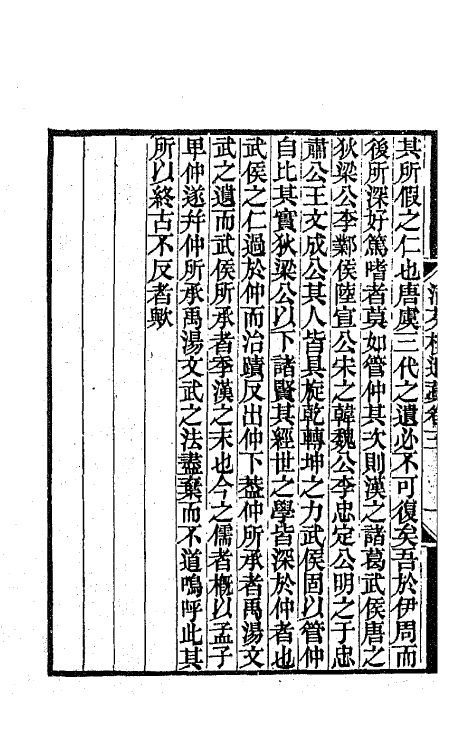 其所假之仁也唐虞三代之遺必不可復矣吾於伊周而
後所深好篤嗜者莫如管仲其次則漢之諸葛武侯唐之
狄梁公李鄴侯陸宣公宋之韓魏公李忠定公明之于忠
肅公王文成公其人皆具旋乾轉坤之力武侯固以管仲
自比其實狄梁公以下諸賢其經世之學皆深於仲者也
武侯之仁過於仲而治蹟反出仲下葢仲所承者禹湯文
武之遺而武侯所承者季漢之末也今之儒者概以孟子
卑仲遂幷仲所承禹湯文武之法盡棄而不道嗚呼此其
所以終古不反者歟